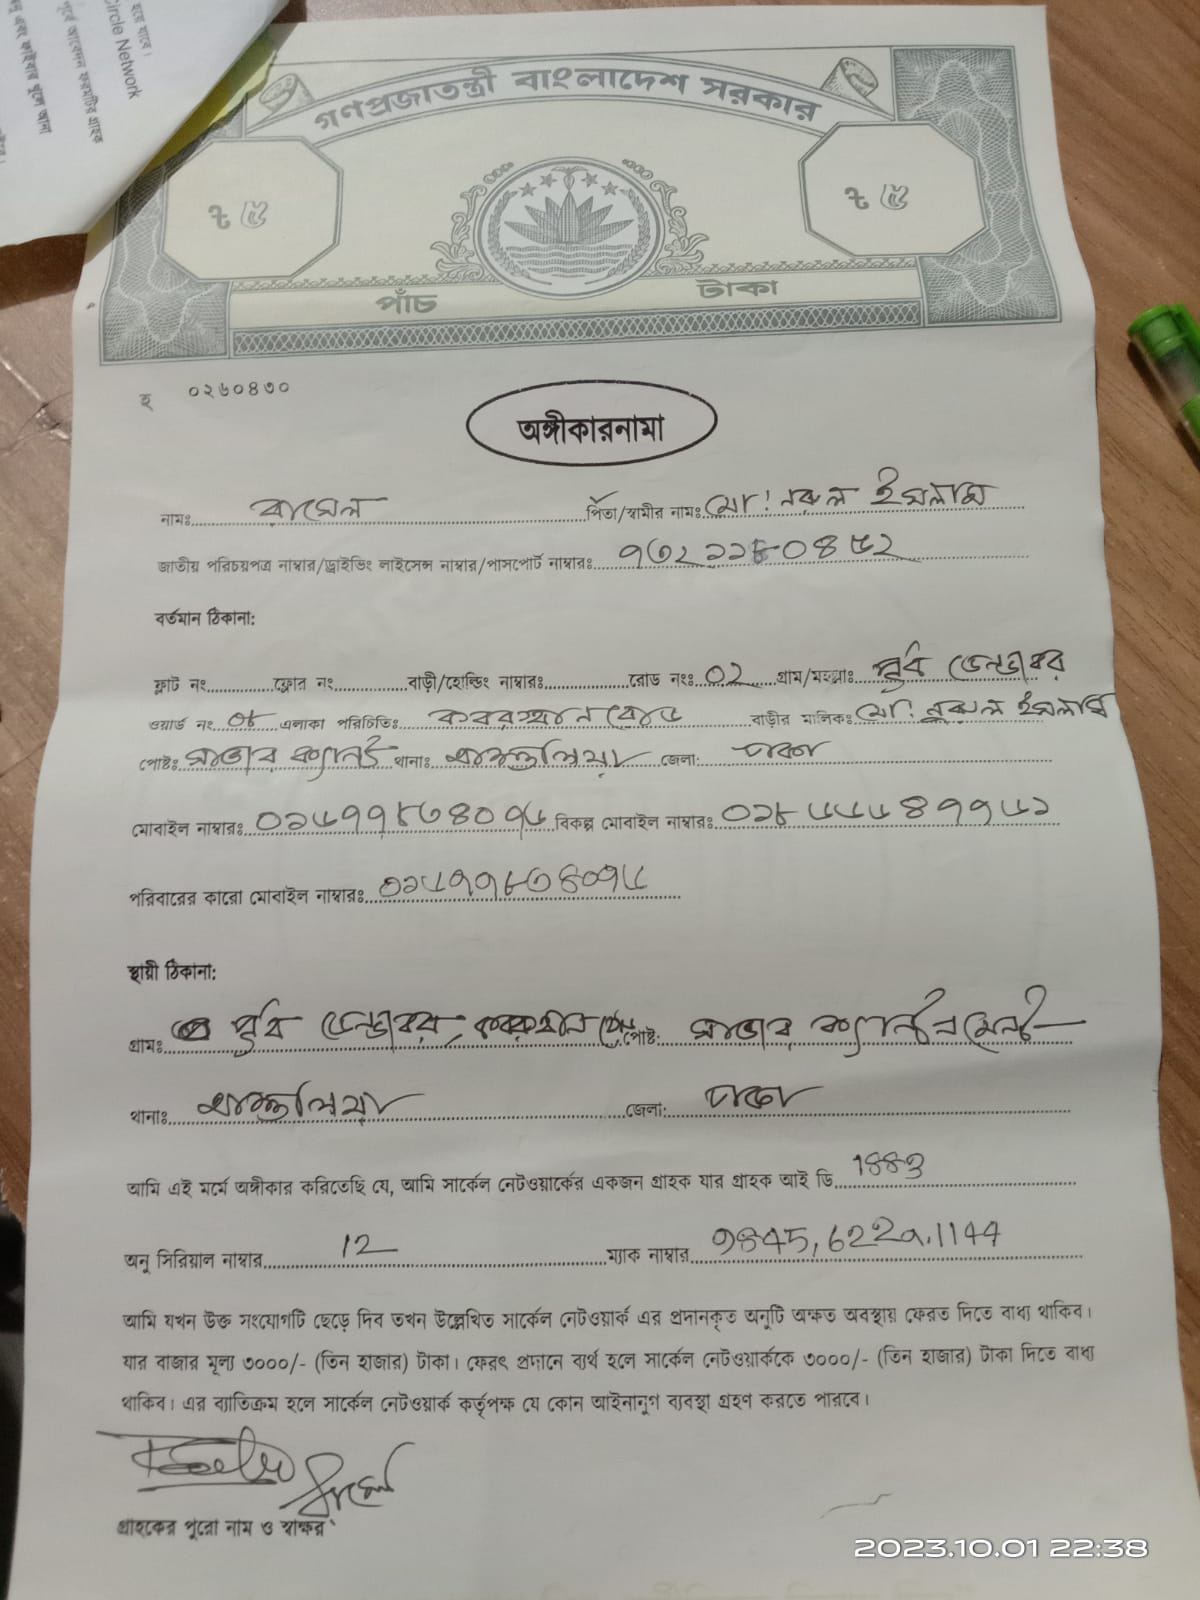 হয়ে যাবে।
Circle Network
পূর্বে আবেদন ফরমটির গ্রাহক
এবং ফাইবার খুলে আনা
গণপ্রজাতন্ত্রী বাংলাদেশ সরকার
৳ ৫ ৳ ৫
পাঁচ টাকা
হ ০২৬০৪৩০
অঙ্গীকারনামা
নামঃ রাসেল পিতা/স্বামীর নামঃ মো: নুরুল ইসলাম
জাতীয় পরিচয়পত্র নাম্বার/ড্রাইভিং লাইসেন্স নাম্বার/পাসপোর্ট নাম্বারঃ
বর্তমান ঠিকানা:
ফ্লাট নং ফ্লোর নং বাড়ী/হোল্ডিং নাম্বারঃ রোড নংঃ ০২ গ্রাম/মহল্লাঃ পূর্ব ডেন্ডাবর
ওয়ার্ড নং ০৮ এলাকা পরিচিতিঃ কবরস্থান রোড বাড়ীর মালিকঃ মো: নুরুল ইসলাম
পোষ্টঃ সাভার ক্যান্ট থানাঃ আশুলিয়া জেলা: ঢাকা
মোবাইল নাম্বারঃ বিকল্প মোবাইল নাম্বারঃ
পরিবারের কারো মোবাইল নাম্বারঃ
স্থায়ী ঠিকানা:
গ্রামঃ পূর্ব ডেন্ডাবর, কবরস্থান রোড পোষ্ট: সাভার ক্যান্টনমেন্ট
থানাঃ আশুলিয়া জেলা: ঢাকা
আমি এই মর্মে অঙ্গীকার করিতেছি যে, আমি সার্কেল নেটওয়ার্কের একজন গ্রাহক যার গ্রাহক আই ডি
অনু সিরিয়াল নাম্বার 12 ম্যাক নাম্বার
আমি যখন উক্ত সংযোগটি ছেড়ে দিব তখন উল্লেখিত সার্কেল নেটওয়ার্ক এর প্রদানকৃত অনুটি অক্ষত অবস্থায় ফেরত দিতে বাধ্য থাকিব।
যার বাজার মূল্য ৩০০০/- (তিন হাজার) টাকা। ফেরৎ প্রদানে ব্যর্থ হলে সার্কেল নেটওয়ার্ককে ৩০০০/- (তিন হাজার) টাকা দিতে বাধ্য
থাকিব। এর ব্যাতিক্রম হলে সার্কেল নেটওয়ার্ক কর্তৃপক্ষ যে কোন আইনানুগ ব্যবস্থা গ্রহণ করতে পারবে।
রাসেল
গ্রাহকের পুরো নাম ও স্বাক্ষর
2023.10.01 22:38